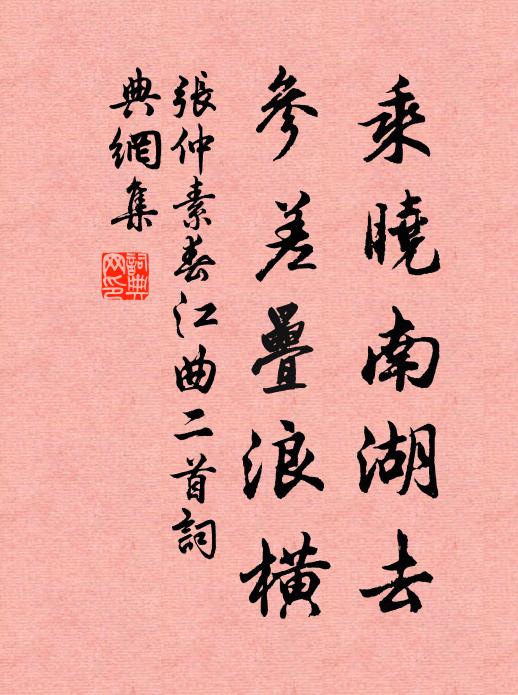 乘曉南湖去
參差疊浪橫
張仲素春江曲二首詞
典網集
詞典
网印